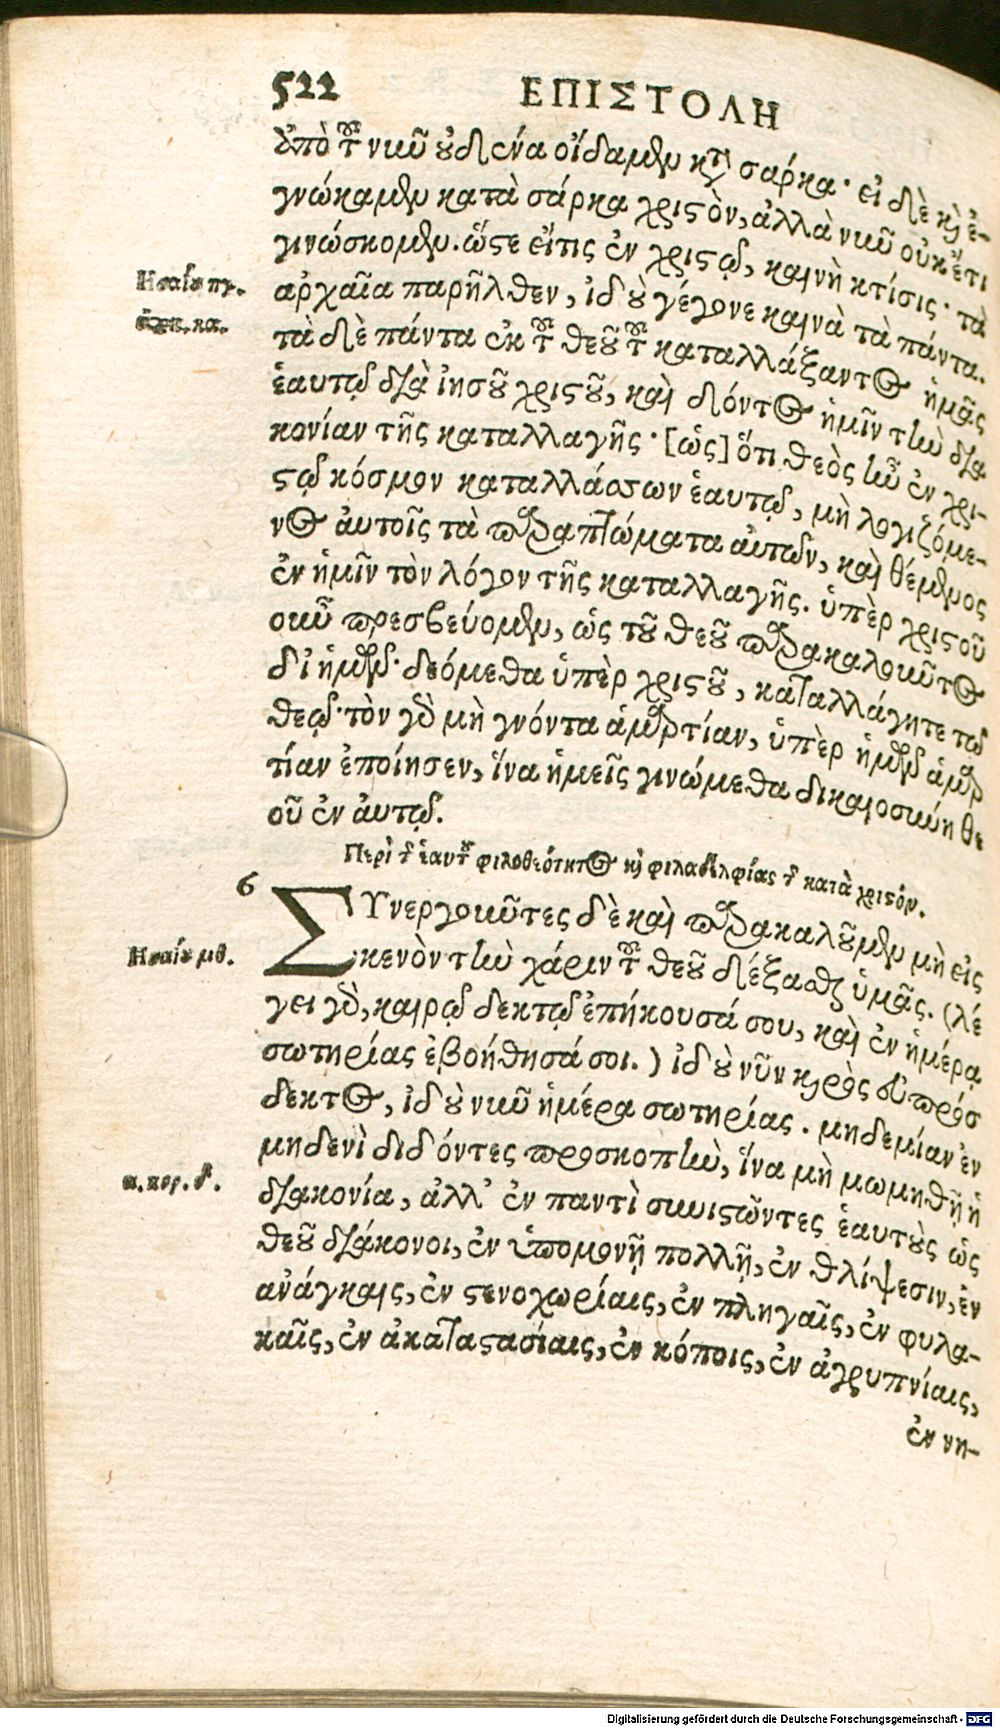 522 ΕΠΙΣΤΟΛΗ
ἀπὸ τοῦ νιῦ οὐδένα οἴδαμεν κατὰ σάρκα· εἰ δὲ καὶ ἐ-
γνώκαμεν κατὰ σάρκα χριστὸν, ἀλλὰ νῦν οὐκ ἔτι
γινώσκομεν. ὥστε εἴτις ἐν χριστῷ, καινὴ κτίσις· τὰ
Ησαΐου πγ. ἀρχαῖα παρῆλθεν, ἰδοὺ γέγονε καινὰ τὰ πάντα.
τὰ δὲ πάντα ἐκ τοῦ θεοῦ τοῦ καταλλάξαντος ἡμᾶς
ἑαυτῷ διὰ ἰησοῦ χριστοῦ, καὶ δόντος ἡμῖν τὴν δια
κονίαν τῆς καταλλαγῆς· [ὡς] ὅτι θεὸς ἦν ἐν χρι-
στῷ κόσμον καταλλάσσων ἑαυτῷ, μὴ λογιζόμε-
νος ἀυτοῖς τὰ παραπτώματα αὐτῶν, καὶ θέμενος
ἐν ἡμῖν τὸν λόγον τῆς καταλλαγῆς. ὑπὲρ χριστοῦ
οὖν πρεσβεύομεν, ὡς τοῦ θεοῦ παρακαλοῦντος
δι ἡμῶν· δεόμεθα ὑπὲρ χριστοῦ, καταλλάγητε τῷ
θεῷ· τὸν γὰρ μὴ γνόντα ἁμαρτίαν, ὑπὲρ ἡμῶν ἁμαρ
τίαν ἐποίησεν, ἵνα ἡμεῖς γινώμεθα δικαιοσύνη θε
οῦ ἐν ἀυτῷ.
Περὶ τῆς ἑαυτοῦ φιλοθεότητος καὶ φιλαδελφίας τῆς κατὰ χριστόν.
6 ΣΥνεργοῦντες δὲ καὶ παρακαλοῦμεν μὴ εἰς
Ησαΐου μθ. κενὸν τὴν χάριν τοῦ θεοῦ δέξασθαι ὑμᾶς. (λέ
γει γὰρ, καιρῷ δεκτῷ ἐπήκουσά σου, καὶ ἐν ἡμέρᾳ
σωτηρίας ἐβοήθησά σοι.) ἰδοὺ νῦν καιρὸς εὐπρόσ
δεκτος, ἰδοὺ νῦν ἡμέρα σωτηρίας. μηδεμίαν ἐν
μηδενὶ διδόντες προσκοπὴν, ἵνα μὴ μωμηθῇ ἡ
α. κορ. δ. διακονία, ἀλλ' ἐν παντὶ συνιστῶντες ἑαυτοὺς ὡς
θεοῦ διάκονοι, ἐν ὑπομονῇ πολλῇ, ἐν θλίψεσιν, ἐν
ἀνάγκαις, ἐν στενοχωρίαις, ἐν πληγαῖς, ἐν φυλα-
καῖς, ἐν ἀκαταστασίαις, ἐν κόποις, ἐν ἀγρυπνίαις,
ἐν νη-
Digitalisierung gefördert durch die Deutsche Forschungsgemeinschaft - DFG